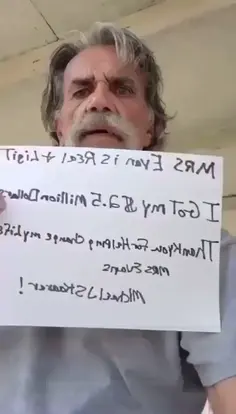 MRS Evan is Real + Ligit
I GoT my $2.5 Million Dollars
Thank you For Helping Change my Life
MRS Evans
Michael J Skaarer!